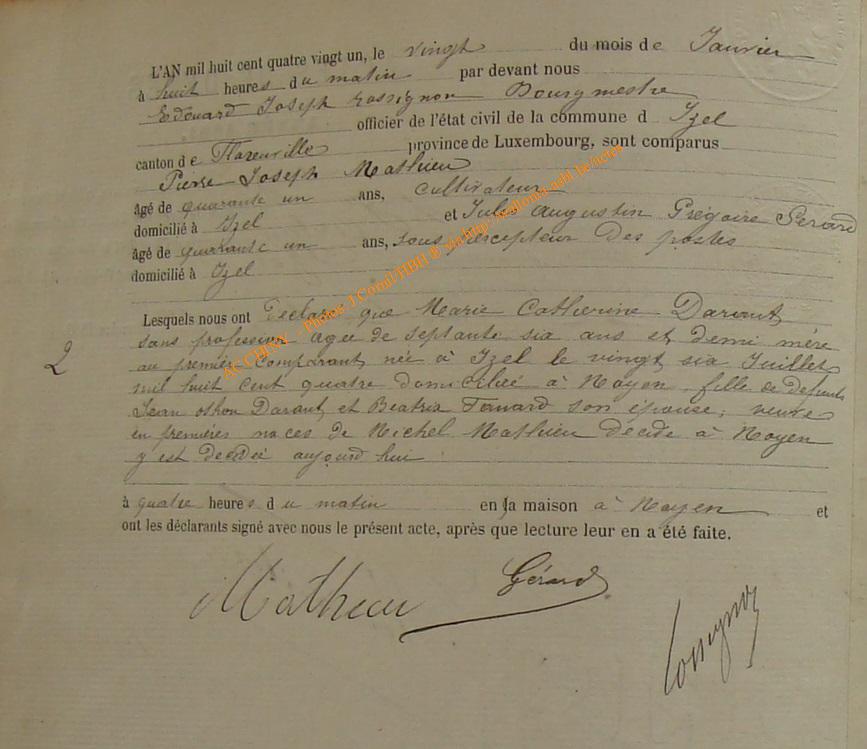 L'AN mil huit cent quatre vingt un, le vingt du mois de Janvier
à huit heures du matin par devant nous
Edouard Joseph Rossignon Bourgmestre
officier de l'état civil de la commune d Izel
canton de Florenville province de Luxembourg, sont comparus
Pierre Joseph Mathieu
âgé de quarante un ans, cultivateur
domicilié à Izel et Jules Augustin Grégoire Gerard
âgé de quarante un ans, sous percepteur des postes
domicilié à Izel
Lesquels nous ont déclaré que Marie Catherine Darant
sans profession agée de septante six ans et demi mère
2
au premier comparant née à Izel le vingt six Juillet
mil huit cent quatre domiciliée à Moyen, fille de defunts
Jean Darant et Beatrix son épouse, veuve
en premières noces de Michel Mathieu décidé à Moyen
y est decidée aujourd hui
à quatre heures du matin en sa maison à Moyen et
ont les déclarants signé avec nous le présent acte, après que lecture leur en a été faite.
Mathieu Gérard
Rossignon
AC CHINY - Photos J Cornil HBH ® via http